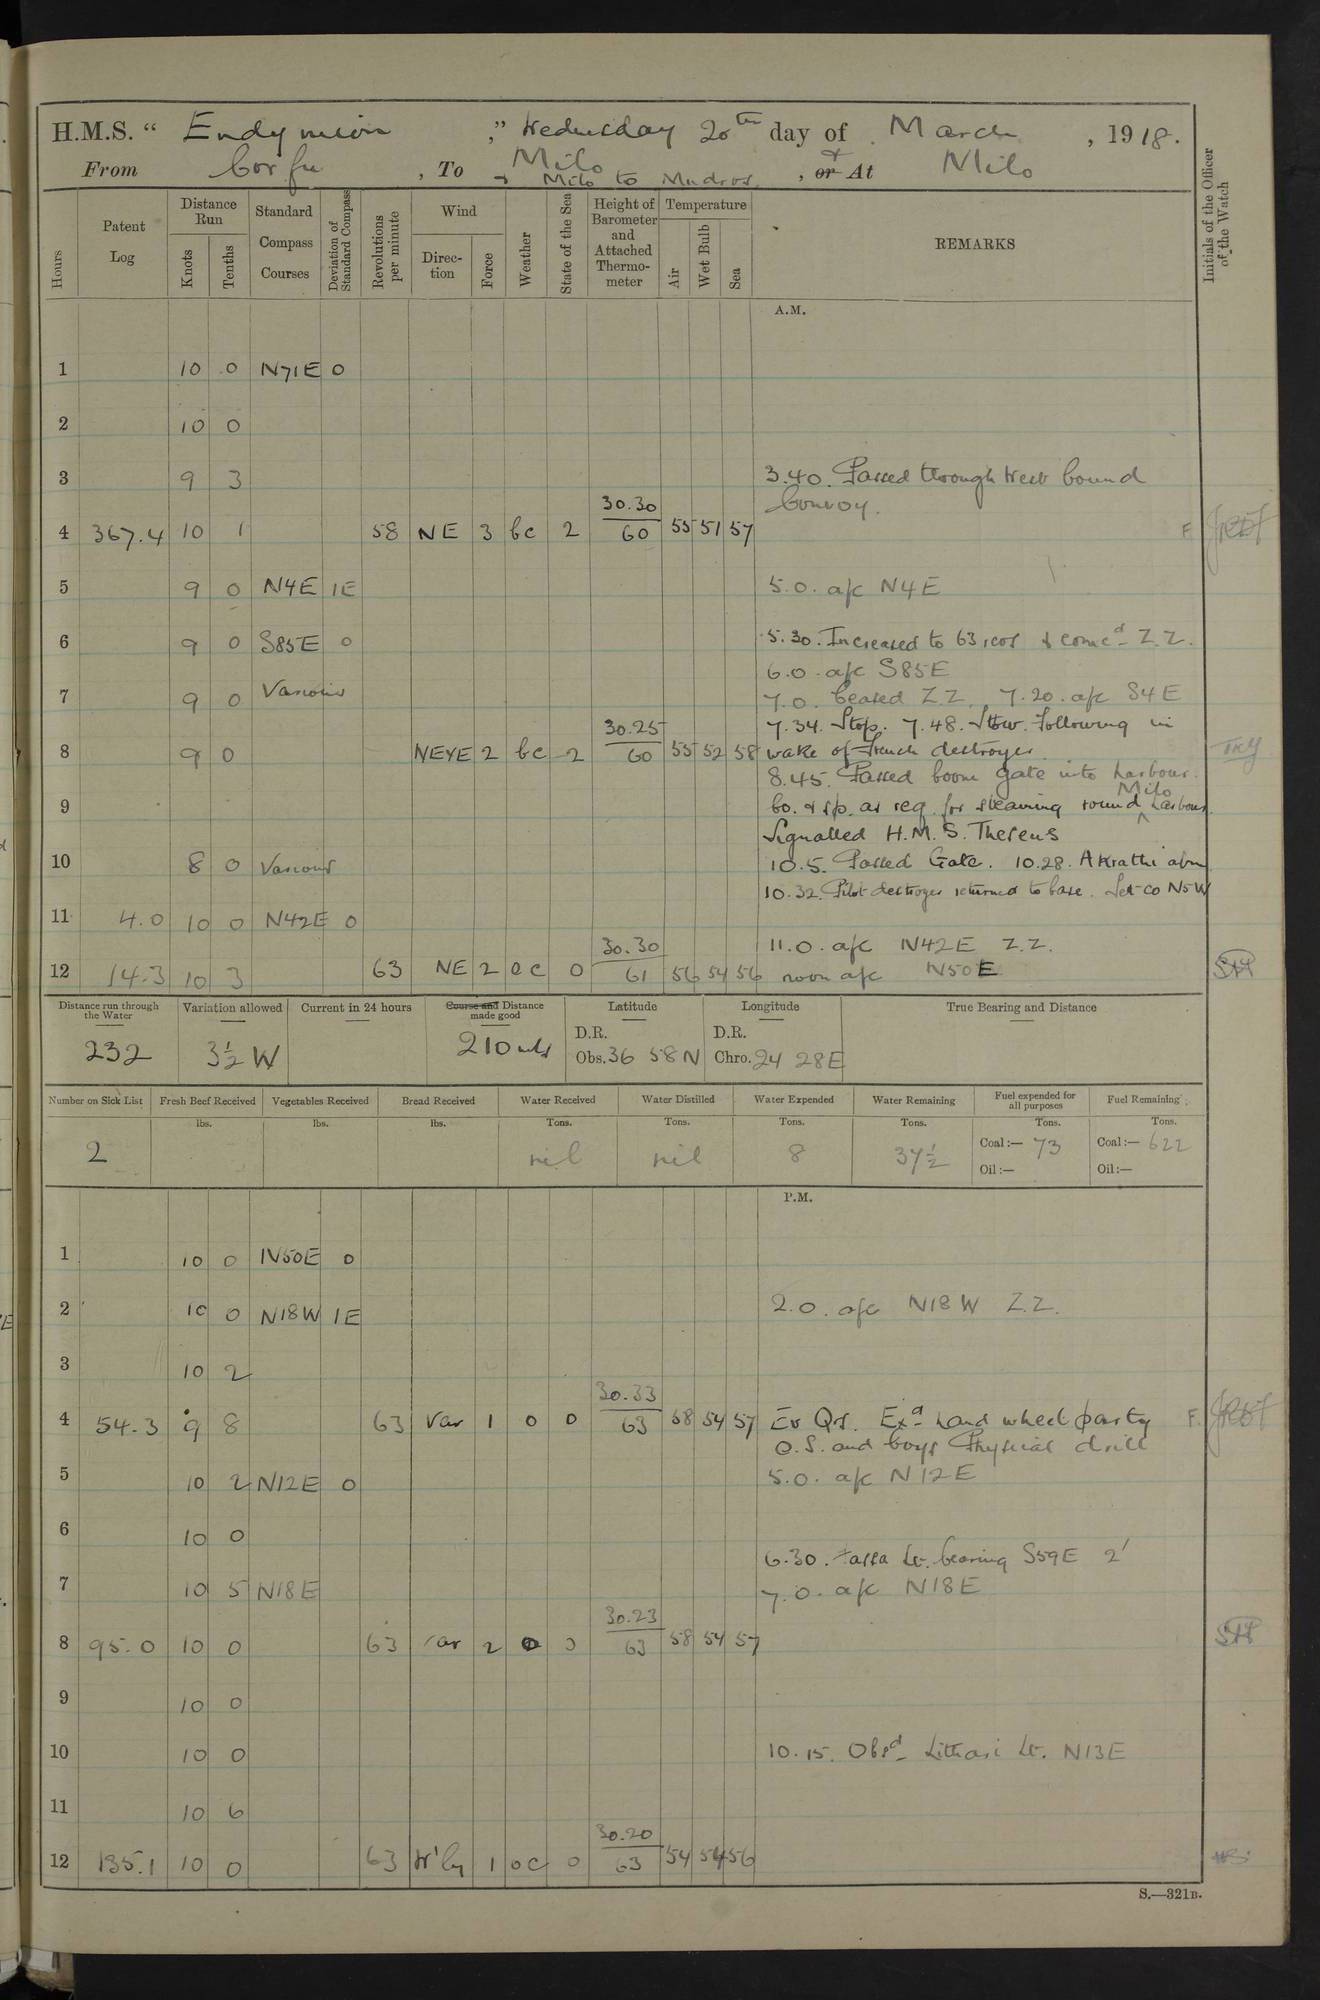 H.M.S. “ Endymion ,” Wednesday 20th day of March , 1918.
From Corfu , To Milo , or & At Milo
& Milo to Mudros
Hours Patent Log Distance Run Knots Tenths Standard Compass Courses Deviation of Standard Compass Revolutions per minute Wind Direction Force Weather State of the Sea Height of Barometer and Attached Thermometer Temperature Air Wet Bulb Sea REMARKS Initials of the Officer of the Watch
A.M.
1 10 0 N71E 0
2 10 0
3 9 3 3.40. Passed through West bound
Convoy.
4 367.4 10 1 58 NE 3 bc 2 30.30 60 55 51 57 F.
5 9 0 N4E 1E 5.0. a/c N4E
6 9 0 S85E 0 5.30. Increased to 63 revs & comcd Z.Z.
6.0. a/c S85E
7 9 0 Various 7.0. Ceased Z.Z. 7.20. a/c S4E
7.34. Stop. 7.48. Slow. Following in
8 9 0 NEYE 2 bc 2 30.25 60 55 52 58 wake of French destroyer
8.45. Passed boom gate into harbour.
9 Co. & sp. as req. for steaming round Milo harbour.
Signalled H.M.S. Theseus
10 8 0 Various 10.5. Passed Gate. 10.28. Akrathi abm
10.32. Pilot destroyer returned to base. Set co N5W
11 4.0 10 0 N42E 0
11.0. a/c N42E Z.Z.
12 14.3 10 3 63 NE 2 oc 0 30.30 61 56 54 56 noon a/c N50E
Distance run through the Water Variation allowed Current in 24 hours Course and Distance made good Latitude Longitude True Bearing and Distance
232 3½ W 210 mls D.R. Obs. 36 58 N D.R. Chro. 24 28 E
Number on Sick List Fresh Beef Received Vegetables Received Bread Received Water Received Water Distilled Water Expended Water Remaining Fuel expended for all purposes Fuel Remaining
lbs. lbs. lbs. Tons. Tons. Tons. Tons. Tons. Tons.
2 nil nil 8 37½ Coal:— 73 Coal:— 622
Oil:— Oil:—
P.M.
1 10 0 N50E 0
2 10 0 N18W 1E 2.0. a/c N18W Z.Z.
3 10 2
4 54.3 9 8 63 Var 1 0 0 30.33 63 58 54 57 Ev Qrs. Exd hand wheel party F.
O.S. and boys Physical drill
5 10 2 N12E 0 5.0. a/c N12E
6 10 0
6.30. Fassa Lt. bearing S59E 2'
7 10 5 N18E 7.0. a/c N18E
8 95.0 10 0 63 Var 2 0 0 30.23 63 58 54 57
9 10 0
10 10 0 10.15. Obsd Lithari Lt. N13E
11 10 6
12 135.1 10 0 63 W'ly 1 oc 0 30.20 63 54 54 56
S.—321B.